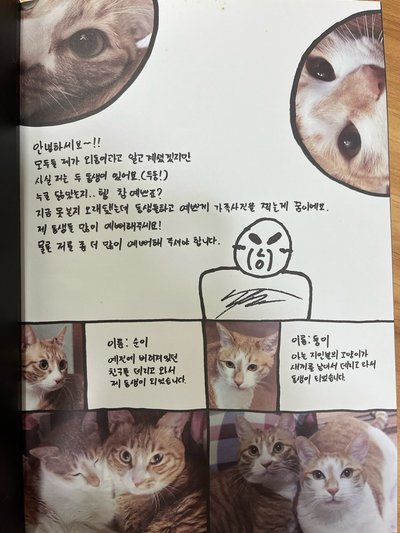 안녕하세요~!!
모두들 제가 외동이라고 알고 계셨겠지만
사실 저는 두 동생이 있어요.(두둥!)
누굴 닮았는지.. 헿 참 예쁘죠?
지금 못본지 오래됐는데 동생들하고 예쁘게 가족사진을 찍는게 꿈이에요.
제 동생들 많이 예뻐해주세요!
물론 저를 좀 더 많이 예뻐해 주셔야 합니다.
이름: 순이
예전에 버려져있던
친구를 데리고 와서
제 동생이 되었습니다.
이름: 둥이
아는 지인분의 고양이가
새끼를 낳아서 데리고 와서
동생이 되었습니다.